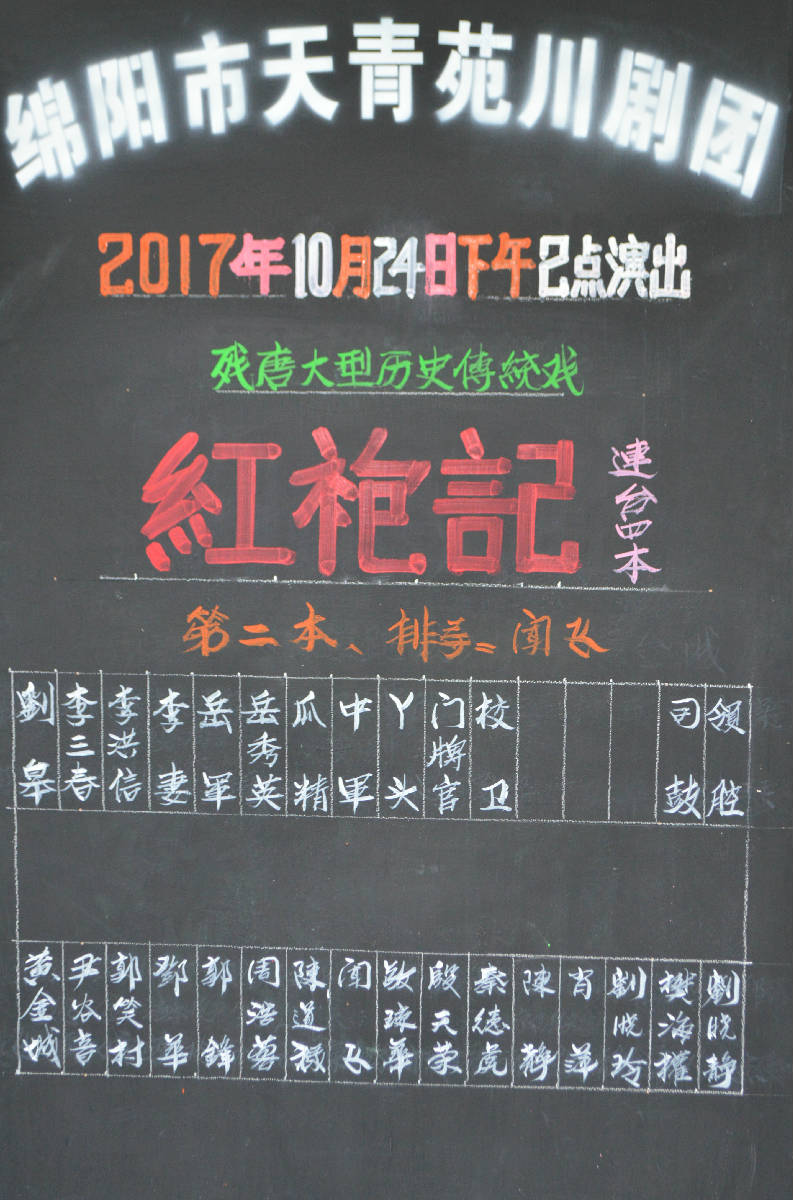 绵阳市天青苑川剧团
2017年10月24日下午2点演出
残唐大型历史傳統戏
紅袍記
連台四本
第二本、排导=闻飞
劉皋 李三春 李洪信 李妻 岳軍 岳秀英 瓜精 中軍 丫头 门牌官 校卫 司鼓 领腔
黄金城 尹农音 郭笑村 鄧華 郭鋒 周浩蓉 陳道稷 闻飞 敬球華 殷天荣 秦德虎 陳静 肖萍 劉晓玲 樊海權 劉晓静